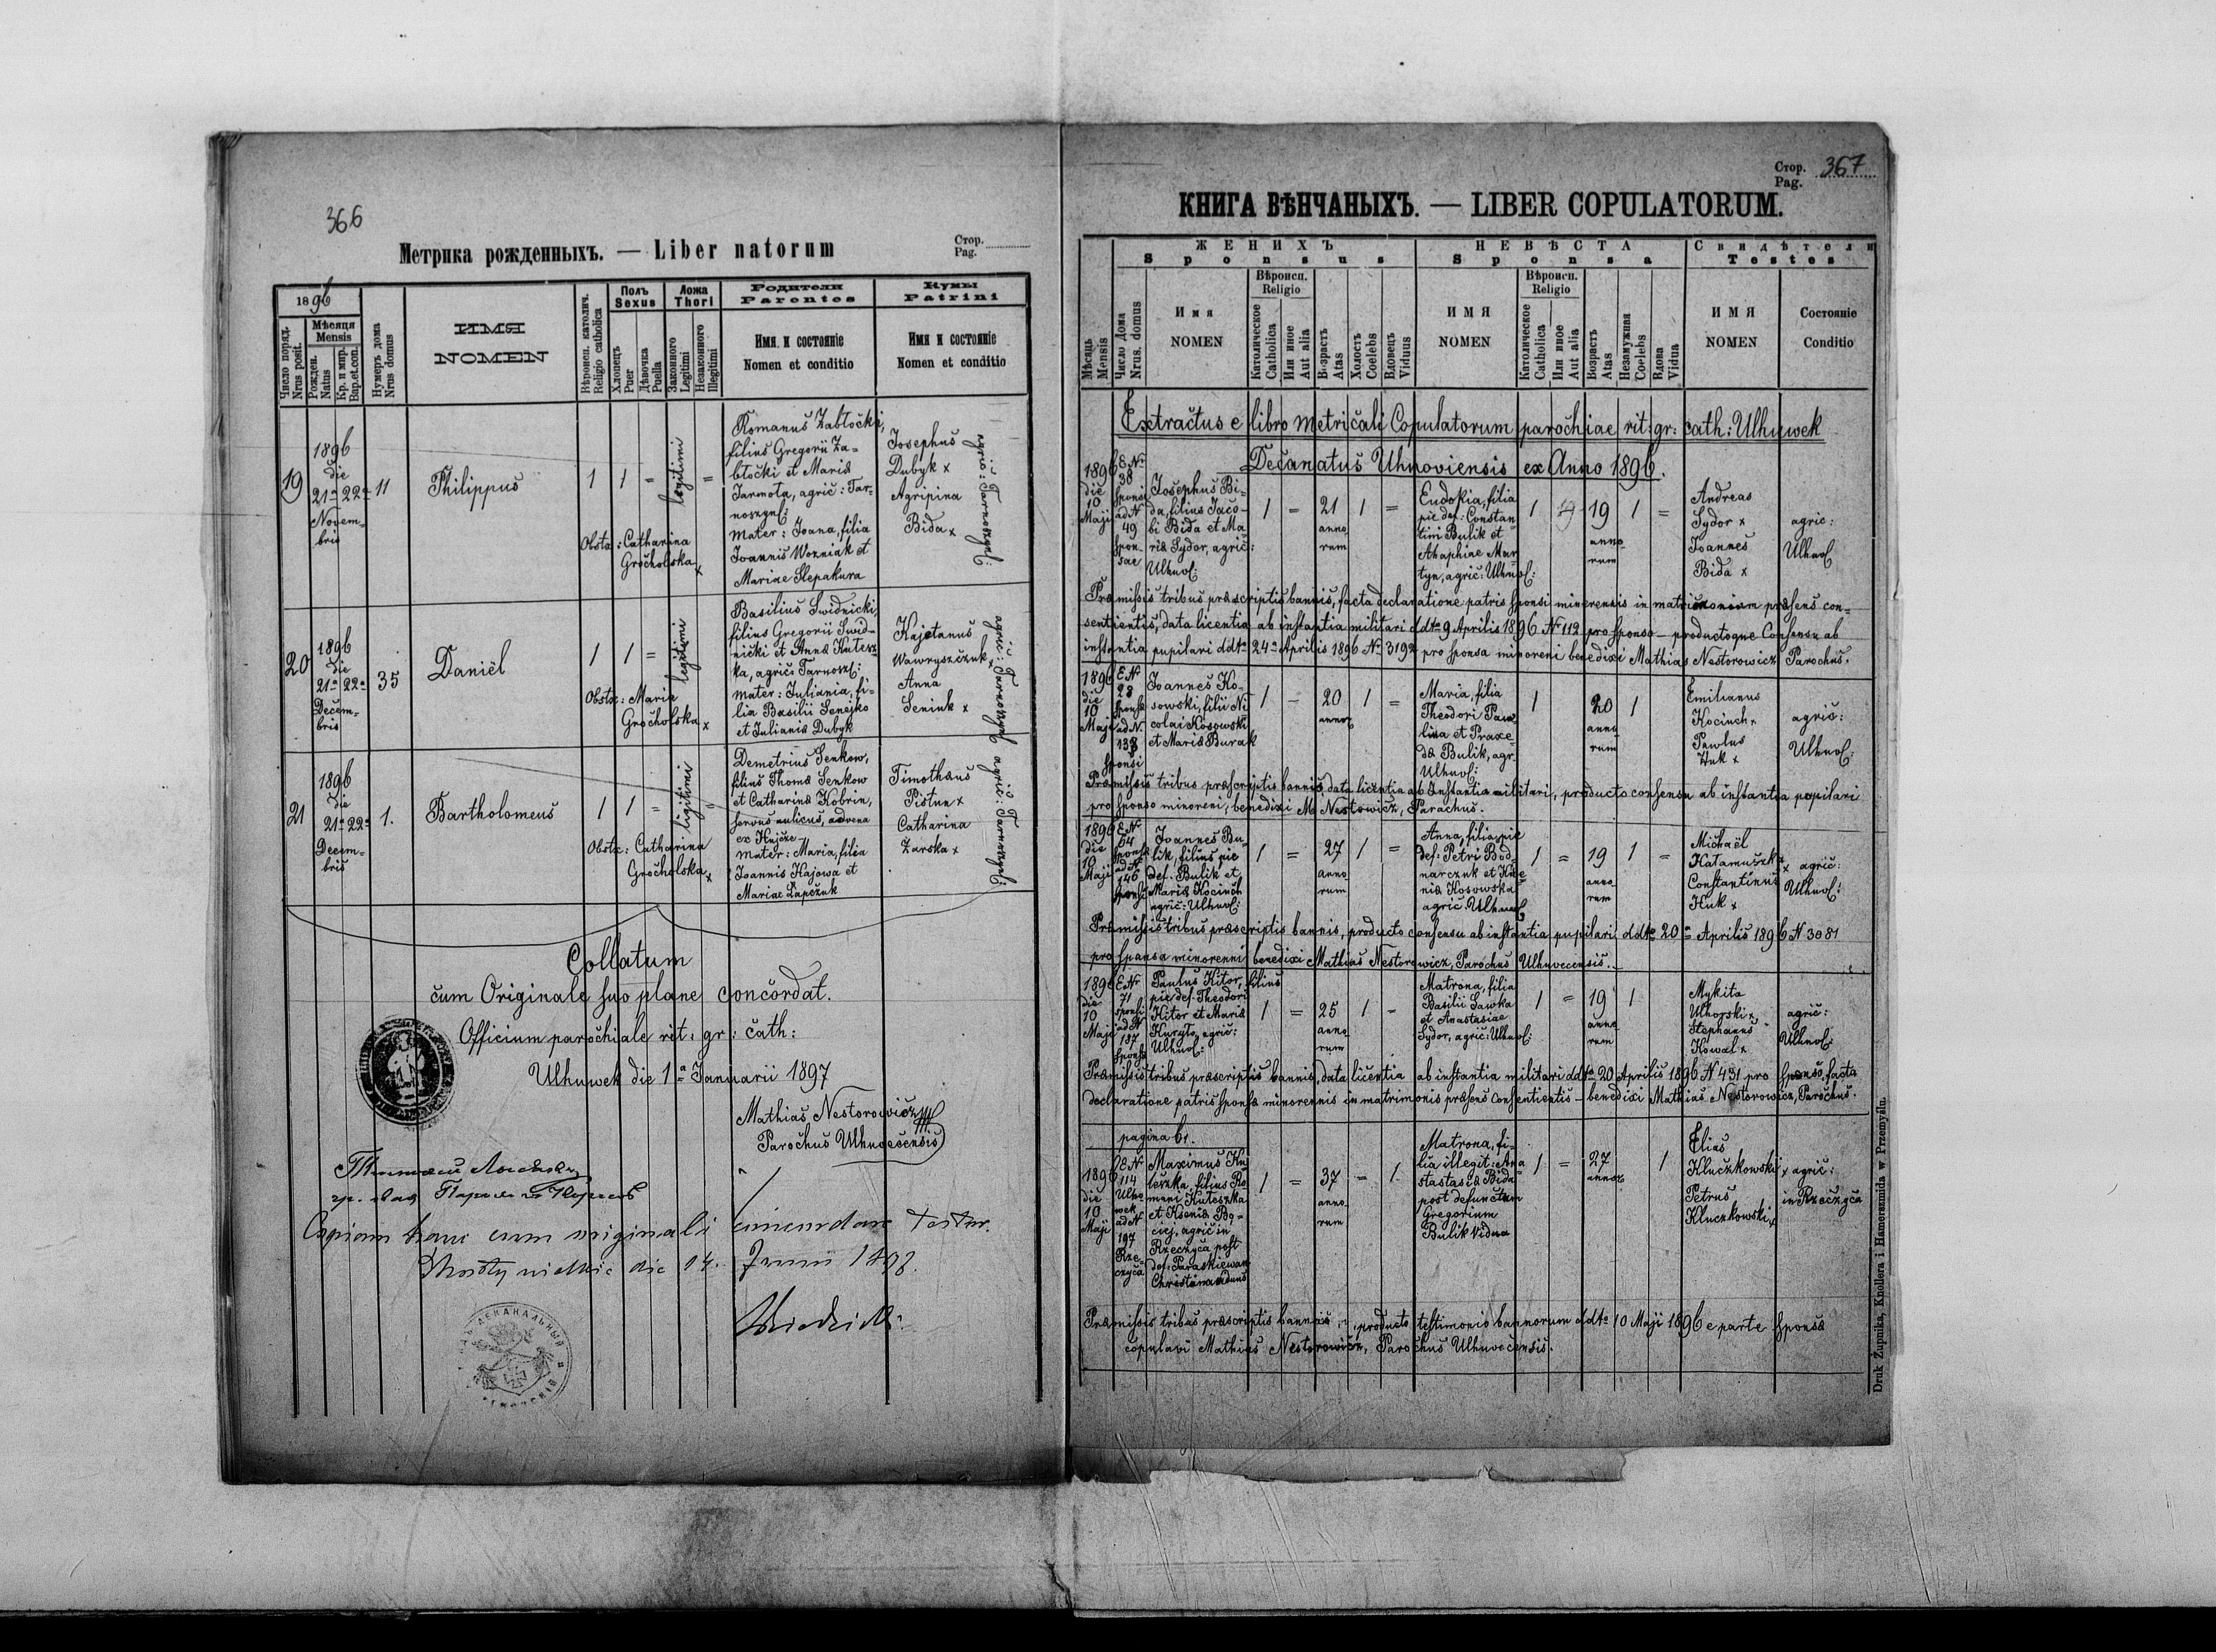 366
Метрика рожденныхъ. — Liber natorum
Стор.
Pag.
1896
Число поряд.
Nrus posit.
Мѣсяця
Mensis
Рожден.
Natus
Кр. и мир.
Bap.et.con.
Нумеръ дома
Nrus domus
ИМЯ
NOMEN
Вѣроисп. католич.
Religio catholica
Полъ
Sexus
Хлопецъ
Puer
Дѣвочка
Puella
Ложа
Thori
Законного
Legitimi
Незаконного
Illegitimi
Родители
Parentes
Имя и состоянie
Nomen et conditio
Кумы
Patrini
Имя и состоянie
Nomen et conditio
19
1896
die
21a 22a
Novem-
bris
11
Philippus
1
1
=
legitimi
=
Obstx: Catharina
Gročholska x
Romanus Zabłočki,
filius Gregorii Za-
błočki et Maria
Jarmota, agrič: Tar-
noszyn:
mater: Joana, filia
Joannis Wozniak et
Mariae Slepakura
Josephus
Dubyk x
Agripina
Bida x
agrič: Tarnoszyn:
20
1896
die
21a 22a
Dečem-
bris
35
Daniël
1
1
=
legitimi
Obstx: Maria
Gročholska x
Basilius Swidnicki,
filius Gregorii Swid-
nički et Anna Kutesz-
ka, agričs Tarnosz:
mater: Juliania, fi-
lia Basilii Senejko
et Juliania Dubyk
Kajetanus
Wawryszčzuk x
Anna
Seniuk x
agrič: Tarnoszyn
21
1896
die
21a 22a
Decem-
bris
1.
Bartholomeus
1
1
=
legitimi
=
Obstx: Catharina
Gročholska x
Demetrius Senkow,
filius Thoma Senkow
et Catharina Kobrin,
servus aulicus, advena
ex Hujcze
mater: Maria, filia
Joannis Hajowa et
Mariae Łapczuk
Timothaus
Pistun x
Catharina
Zarska x
agrič: Tarnoszyn:
Collatum
čum Originale suo plane concordat.
Officium paročhiale rit: gr: čath:
Ulhuwek die 1a Januarii 1897
Mathias Nestorowičz
Paročhus Ulhuvečensis
Copiam hanc cum originali concordare testor.
die 14. Junii 1898.
Стор.
Pag.
367
КНИГА ВѢНЧАНЫХЪ. — LIBER COPULATORUM.
Мѣсяць
Mensis
Число дома
Nrus. domus
ЖЕНИХЪ
Sponsus
Имя
NOMEN
Вѣроисп.
Religio
Католическое
Catholica
Или иное
Aut alia
Возрастъ
Atas
Холостъ
Coelebs
Вдовецъ
Viduus
НЕВѢСТА
Sponsa
ИМЯ
NOMEN
Вѣроисп.
Religio
Католическое
Catholica
Или иное
Aut alia
Возрастъ
Atas
Незамужная
Coelebs
Вдова
Vidua
Свидѣтели
Testes
ИМЯ
NOMEN
Состоянie
Conditio
Extractus e libro metričali Copulatorum paročhiae rit: gr: čath: Ulhuwek
Dečanatus Uhnoviensis ex Anno 1896.
1896
die
10
Maji
E No
38
sponsi
ad N
49
spon-
sae
Josephus Bi-
da, filius Jaco-
bi Bida et Ma-
ria Sydor, agrič:
Ulhuv:
1
=
21
anno
rum
1
=
Eudokia, filia
pie def: Constan-
tini Bulik et
Ahaphiae Mar-
tyn, agrič: Ulhuv:
1
19
anno-
rum
1
=
Andreas
Sydor x
Joannes
Bida x
agric:
Ulhuv:
Præmissis tribus præscriptis bannis, facta declaratione patris sponsi minorennis in matrimonium præsens con-
sentientis, data licentia ab instantia militari ddto 9 Aprilis 1896 No 112 pro sponso - productoque Consensu ab
instantia pupilari ddto 24a Aprilis 1896 No 3192 pro sponsa minoreni benedixi Mathias Nestorowicz Parochus.
1896
die
10
Maji
E N
28
sponsa
ad N.
138
sponsi
Joannes Ko-
sowski, filii Ni
colai Kosowski
et Maria Burak
1
-
20
annor
1
=
Maria, filia
Theodori Paw-
lina et Praxe-
da Bulik, agr.
Ulhuv:
1
20
anno
rum
1
Emilianus
Kociuch x
Pawlus
Huk x
agrič:
Ulhuv:
Præmissis tribus præscriptis bannis, data licentia ab Instantia militari, producto consensu ab instantia pupilari
pro sponso minoreni, benedixi M Nestowicz, Parachus.
1896
die
10
Maji
E N
64
sponsa
ad N
146
sponsi
Joannes Bu-
lik, filius pie
def. Bulik et
Maria Kociuch
agrič: Ulhuv:
1
=
27
anno
rum
1
=
Anna, filia pie
def: Petri Bod-
narczuk et Kse
nia Kosowska
agrič. Ulhuv
1
=
19
anno
rum
1
=
Michaël
Hałamuszk x
Constantinus
Huk x
x agrič:
Ulhuv:
Præmissis tribus præscriptis bannis, producto consensu ab instantia pupilari ddto 20a Aprilis 1896 N 3081
pro sponsa minorenni benedixi Mathias Nestorowicz, Parochus Ulhuvecensis.
1896
die
10
Maji
E N
71
sponsi
ad N
187
sponsa
Paulus Kitor, filius
pie def. Theodori
Kitor et Maria
Kuryło, agrič:
Ulhuv:
1
=
25
anno
rum
1
-
Matrona, filia
Basilii Sawka
et Anastasiae
Sydor, agrič: Ulhuv:
1
=
19
anno
rum
1
Mykita
Uhorski x
Stephanus
Kowal x
agrič:
Ulhuv:
Præmissis tribus præscriptis bannis, data licentia ab instantia militari ddto 20 Aprilis 1896 N 431 pro sponso, facta
declaratione patris sponsa minorennis in matrimonis præsens consentientis - benedixi Mathias Nestorowicz, Paročhus.
pagina 61.
1896
die
10
Maji
E N
114
Ulhu
wek
ad N
197
Rze-
czyča
Maximus Ku
leszka, filius Ro
mani Kuteszka
et Ksenia Bo-
ciej, agrič in
Rzeczyča post
def: Paraskiewam
Christina viduus
1
=
37
anno-
rum
-
1
Matrona, fi-
lia illegit: Ana
stastasia Bida
post defunctum
Gregorium
Bulik vidua
1
=
27
annor
1
Elias
Kluczkowski x
Petrus
Kluczkowski x
agrič:
in Rzeczyča
Præmissis tribus præscriptis bannis, producto testimonio bannorum ddto 10 Maji 1896 e parte sponsa
copulavi Mathias Nestorowicz, Paročhus Ulhuvečensis.
Druk Żupnika, Knollera i Hamerszmida w Przemyślu.